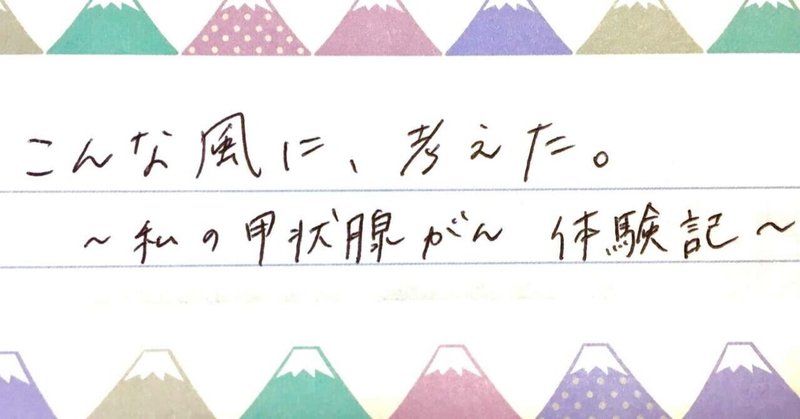 こんな風に、考えた。
～私の甲状腺がん 体験記～